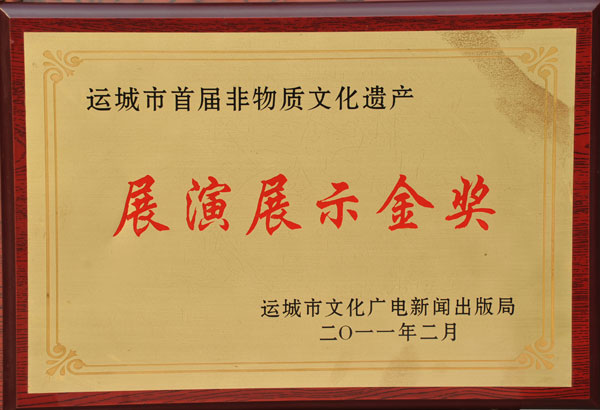 运城市首届非物质文化遗产
展演展示金奖
运城市文化广电新闻出版局
二〇一一年二月